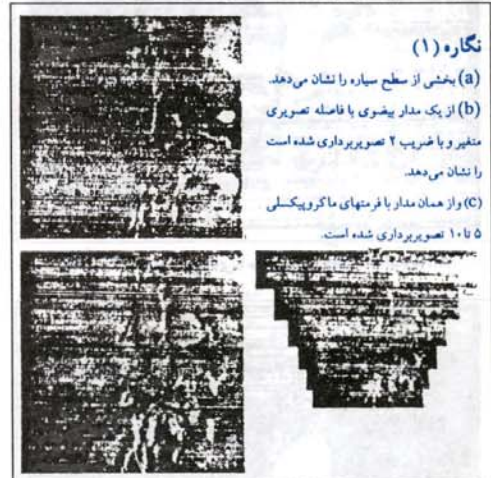 نگاره (۱)
(a) بخشی از سطح سیاره را نشان می‌دهد.
(b) از یک مدار بیضوی با فاصله تصویری
متغیر و با ضریب ۲ تصویربرداری شده است
را نشان می‌دهد.
(c) و از همان مدار با فرمتهای ماکروپیکسلی
۵ تا ۱۰ تصویربرداری شده است.